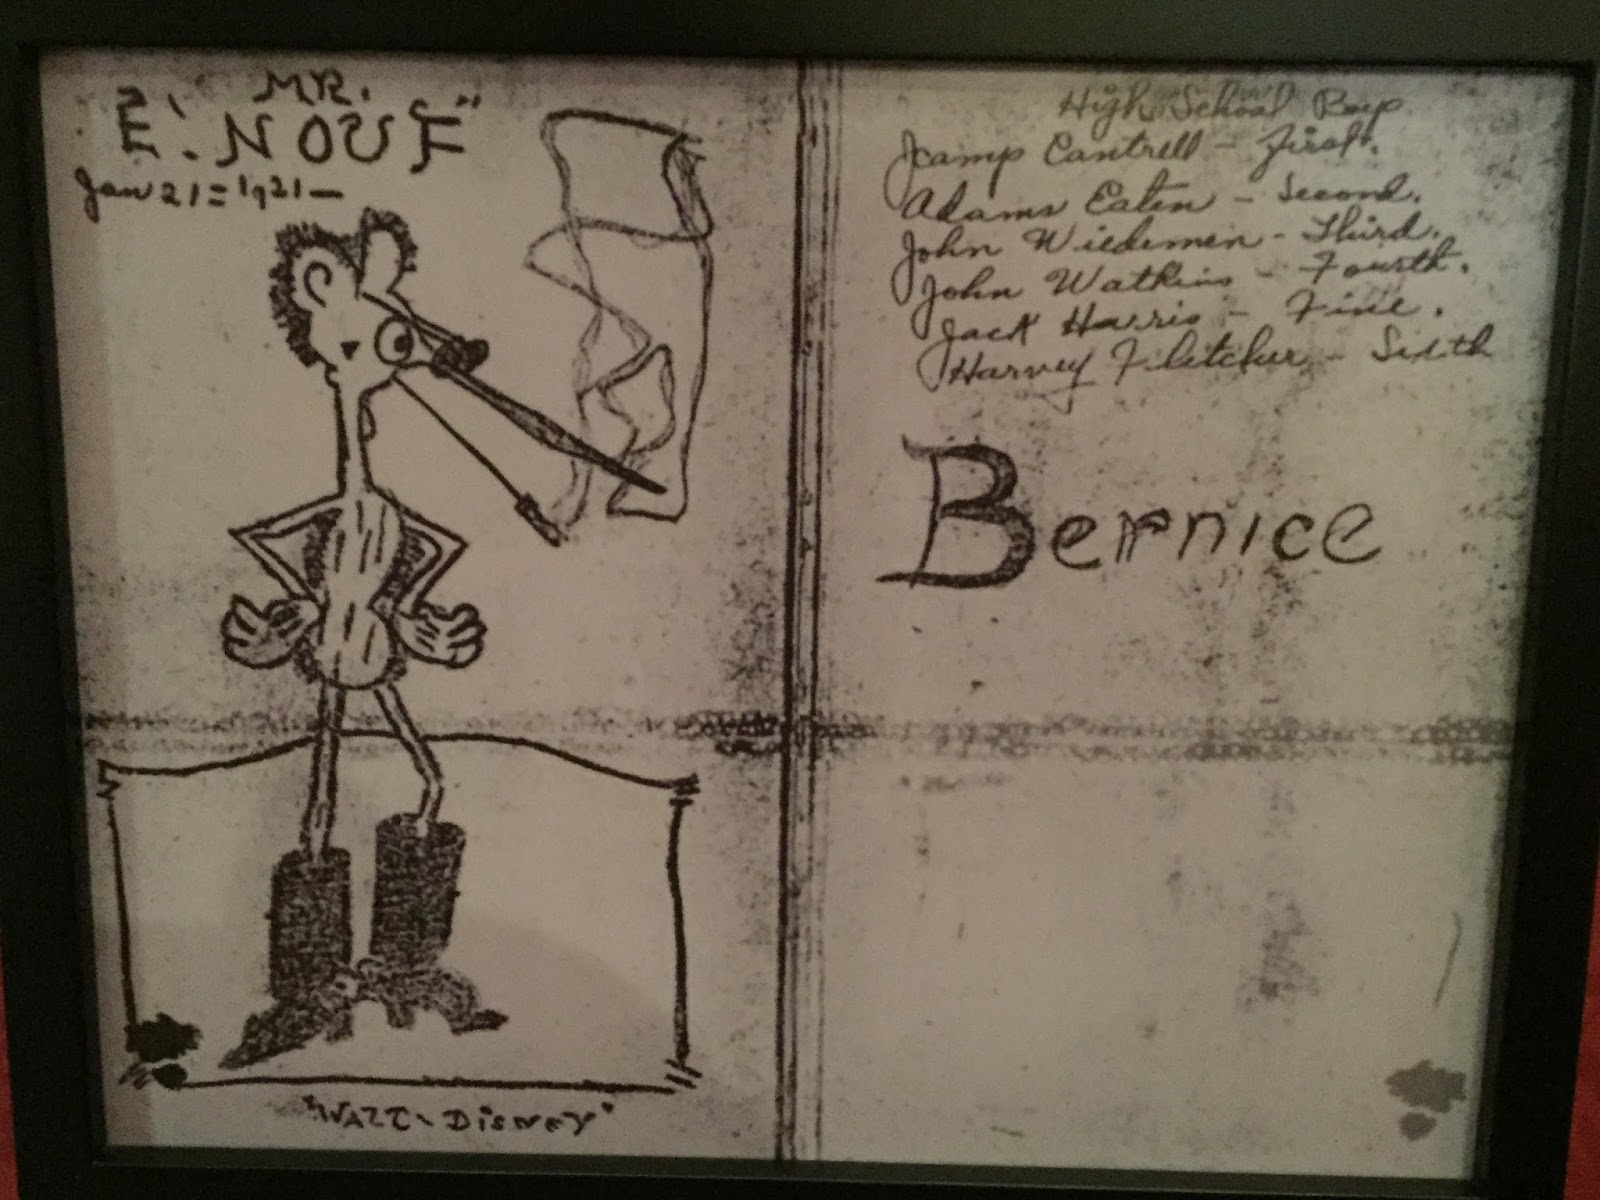 MR.
E. NOUF"
Jan 21 = 1921 —
"WALT - DISNEY"
High School Boys
Jcamp Cantrell - First.
Adams Eaten - Second.
John Wiedemen - Third.
John Watkins - Fourth.
Jack Harris - Five.
Harvey Fletcher - Sixth
Bernice